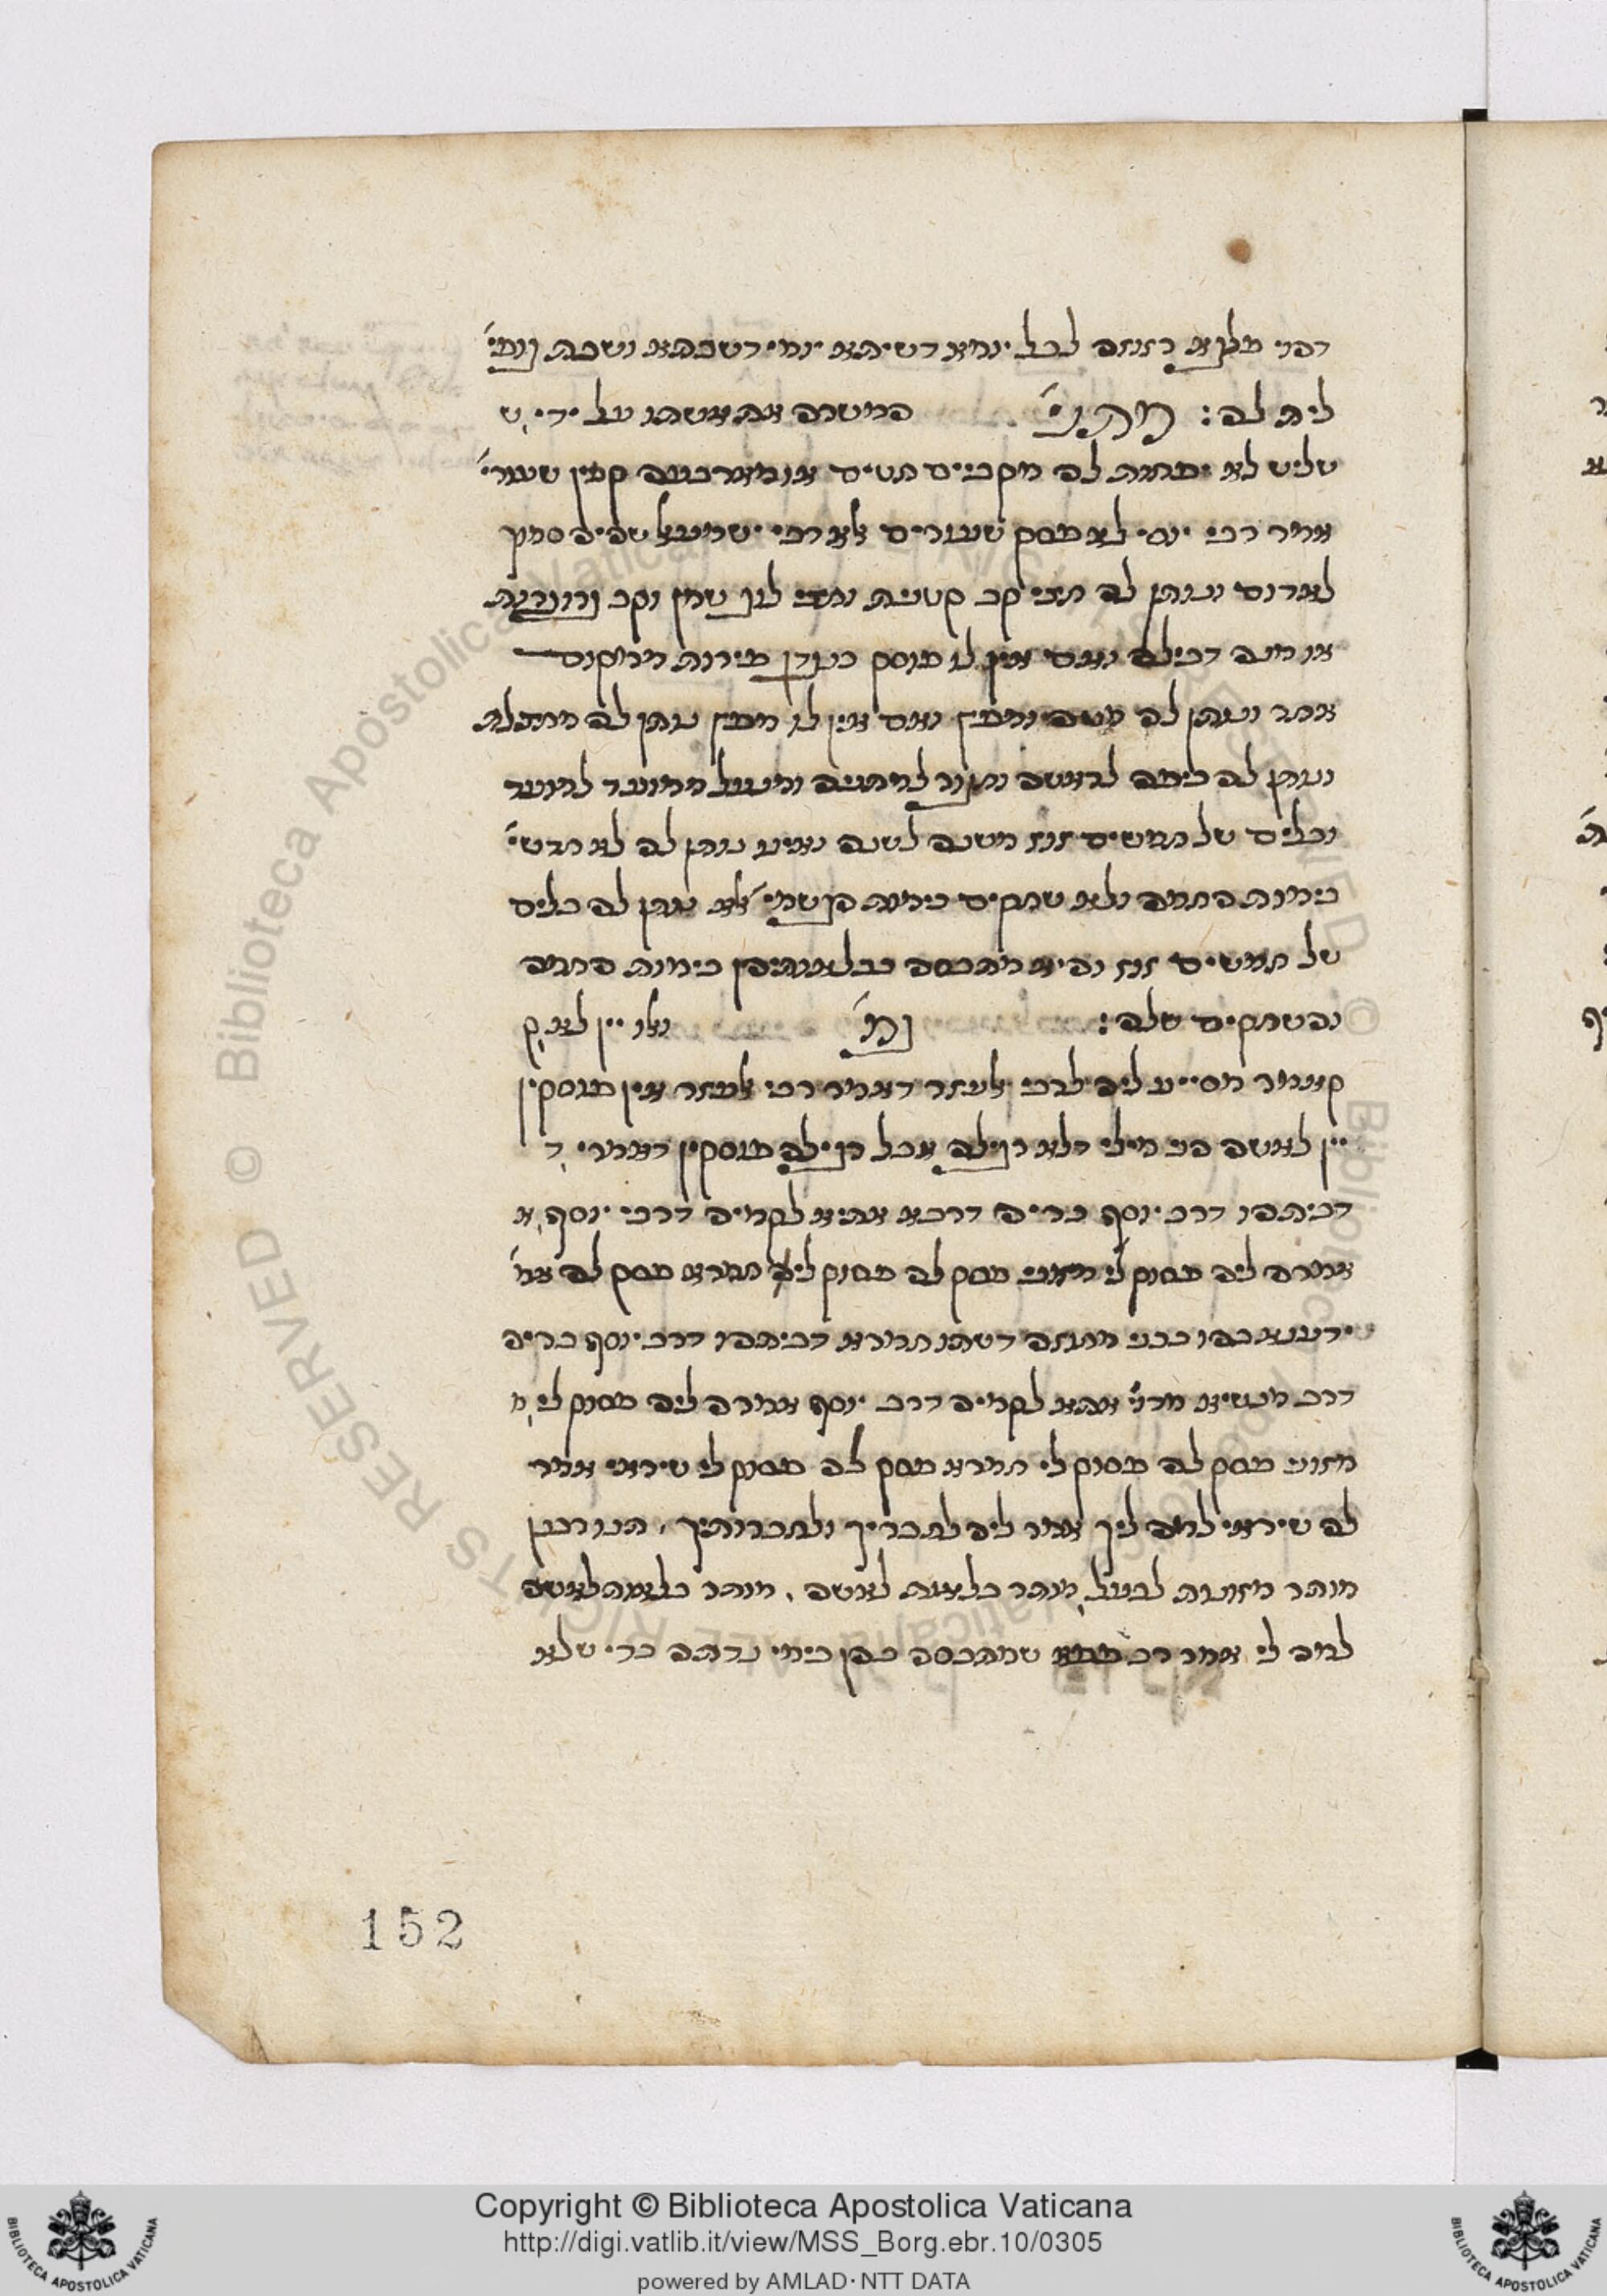 דפני מלגיא רזוזה לכל יומא דשיתא יומי דשבתא ושבת גופי׳
ליה לה : מתני׳ המשרה את אשתו על ידי ש
שליש לא יפחות לה מקביים חטים או מארבעה קבין שעורי׳
אמר רבי יוסי לא פסק שעורים אלא רבי ישמעאל שהיה סמוך
לאדום ונותן לה חצי קב קטנית וחצי לוג שמן וקב גרוגרות
או מנה דבילה ואם אין לו פוסק כנגדן פירות ממקום
אחר ונותן לה מטה ומפץ ואם אין לו מפץ נותן לה מחצלת
ונותן לה כיפה לראשה וחגור למתניה ומנעל ממועד למועד
וכלים של חמשים זוז משנה לשנה ואינו נותן לה לא חדשי׳
בימות החמה ולא שחקים בימות הגשמי׳ אלא נותן לה כלים
של חמשים זוז והיא מתכסה בבלאותיהן בימות החמה
והשחקים שלה : גמ׳ ואלו יין לא ק
קאמר מסייע ליה לרבי אלעזר דאמר רבי אלעזר אין פוסקין
יין לאשה הני מילי דלא רגילה אבל רגילה פוסקין דאמרי ד
דביתהו דרב יוסף בריה דרבא אתיא לקמיה דרבי יוסף א
אמרה ליה פסוק לי מזוני פסק לה פסוק לי חמרא פסק לה אמ׳
ידענא בהו בבני מחוזה דשתו חמרא דביתהו דרב יוסף בריה
דרב מנשיא מדוי׳ אתא לקמיה דרב יוסף אמרה ליה פסוק לי מ
מזוני פסק לה פסוק לי חמרא פסק לה פסוק לי שיראי אמר
לה שיראי למה ליך אמר ליה לחבריך ולחברותיך , תנו רבנן
מותר מזונות לבעל מותר בלאות לאשה , מותר בלאות לאשה
למה לי אמר רב שמתכסה בהן בימי נדתה כדי שלא
152
Copyright © Biblioteca Apostolica Vaticana
http://digi.vatlib.it/view/MSS_Borg.ebr.10/0305
powered by AMLAD·NTT DATA